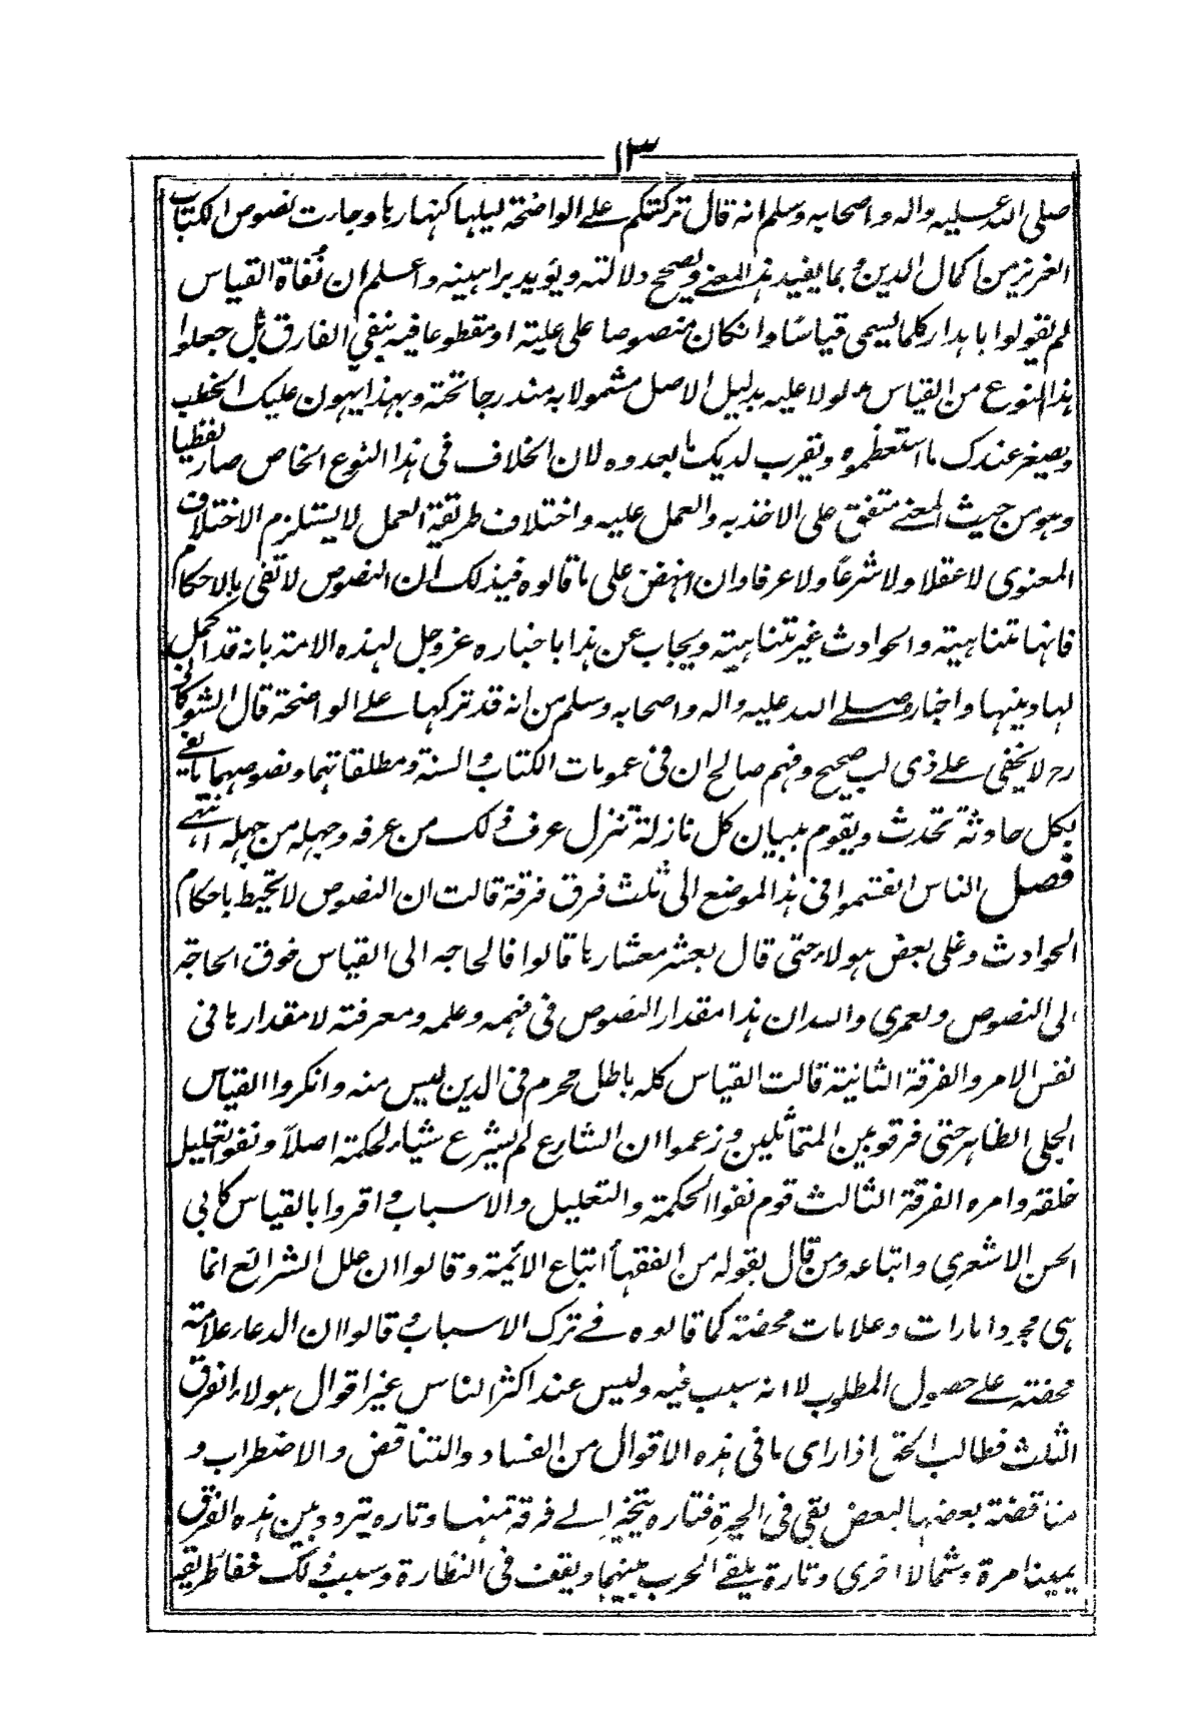 ١٣
صلى الله عليه واله واصحابه وسلم انه قال تركتكم على الواضحة ليلها كنهارها وجاءت نصوص الكتاب
العزيز من اكمال الدين و بما يفيد هذا المعنى ويصحح دلالته ويؤيد براهينه واعلم ان نُفاة القياس
لم يقولوا باهدار كلما يسمى قياسًا وانكان منصوصا على علية او مقطوعا فيه بنفي الفارق بل جعلوا
هذا النوع من القياس مدلولا عليه بدليل الاصل مشمولا به مندرجا تحته وبهذا يهون عليك الخطب
ويصغر عندك ما استعظموه ويقرب لديك ما بعدوه لان الخلاف في هذا النوع الخاص صار لفظيا
وهو من حيث المعنى متفق على الاخذ به والعمل عليه واختلاف طريقة العمل لا يستلزم الاختلاف
المعنوي لا عقلا ولا شرعًا ولا عرفا وان انهض على ما قالوه في ذلك ان النصوص لا تفي بالاحكام
فانها متناهية والحوادث غير متناهية ويجاب عن هذا باخباره عز وجل لهذه الامة بانه قد اكمل
لها دينها واخباره صلى الله عليه واله واصحابه وسلم من انه قد تركها على الواضحة قال الشوكاني
رح لا يخفى على ذي لب صحيح وفهم صالح ان في عمومات الكتاب و السنة ومطلقاتهما ونصوصهما ما يفي
بكل حادثة تحدث ويقوم ببيان كل نازلة تنزل عرف ذلك من عرفه وجهله من جهله انتهى
فصل الناس انقسموا في هذا الموضع الى ثلث فرق فرقة قالت ان النصوص لا تحيط باحكام
الحوادث وغلى بعض هولاء حتى قال بعشر معشارها قالوا فالحاجه الى القياس فوق الحاجة
الى النصوص ولعمري والله ان هذا مقدار النصوص في فهمه وعلمه ومعرفته لا مقدارها في
نفس الامر والفرقة الثانية قالت القياس كله باطل محرم في الدين ليس منه وانكروا القياس
الجلي الظاهر حتى فرقو بين المتماثلين وزعموا ان الشارع لم يشرع شياء لحكمة اصلاً ونفو تعليل
خلقة وامره الفرقة الثالث قوم نفوا الحكمة والتعليل والاسباب و اقروا بالقياس كابي
الحسن الاشعري واتباعه ومن قال بقوله من الفقهأ اتباع الائمة وقالوا ان علل الشرائع انما
هي مجرد امارات وعلامات محضة كما قالوه في ترك الاسباب و قالوا ان الدعاء علامة
محضة على حصول المطلوب لا انه سبب فيه وليس عند اكثر الناس غير اقوال هولاء الفرق
الثلث فطالب الحق اذا راى ما في هذه الاقوال من الفساد والتناقض والاضطراب و
مناقضة بعضها لبعض بقي في الحيرة فتاره يتحيز الى فرقة منها وتاره يتردد بين هذه الفرق
يمينا مرة وشمالا اخرى وتارة يلقى الحرب بينهما ويقف في النظارة وسبب ذلك خفا طريقة